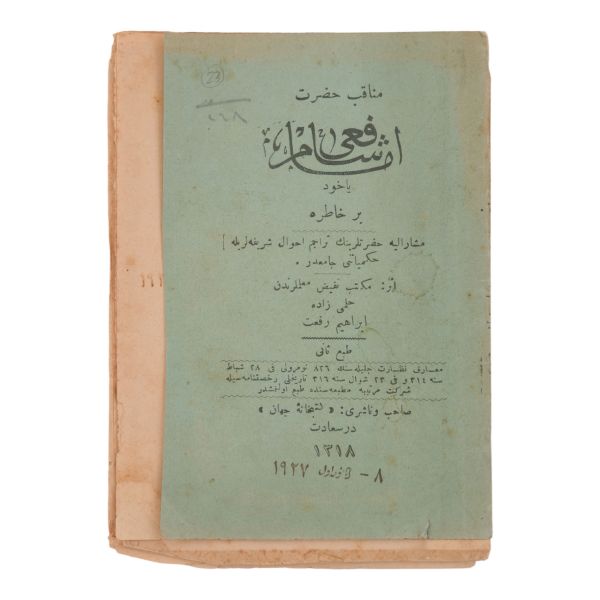 23
٢٦٨
مناقب حضرت
امام شافعی
یاخود
بر خاطره
مشارالیه حضرتلرینك تراجم احوال شریفه‌لریله ]
حکمیاتی جامعدر .
اثر: مکتب فیض معلملرندن
حلمی زاده
ابراهیم رفعت
طبع ثانی
معارف نظارت جلیله‌سنك ٨٢٦ نومرولی فی ٢٨ شباط
سنه ٣١٤ و فی ٢٣ شوال سنه ٣١٦ تاریخلی رخصتنامه‌سیله
شرکت مرتبیه مطبعه‌سنده طبع اولنمشدر
صاحب و ناشری: « کتبخانهٔ جهان »
درسعادت
١٣١٨
٨ - كانون اول ١٩٢٧